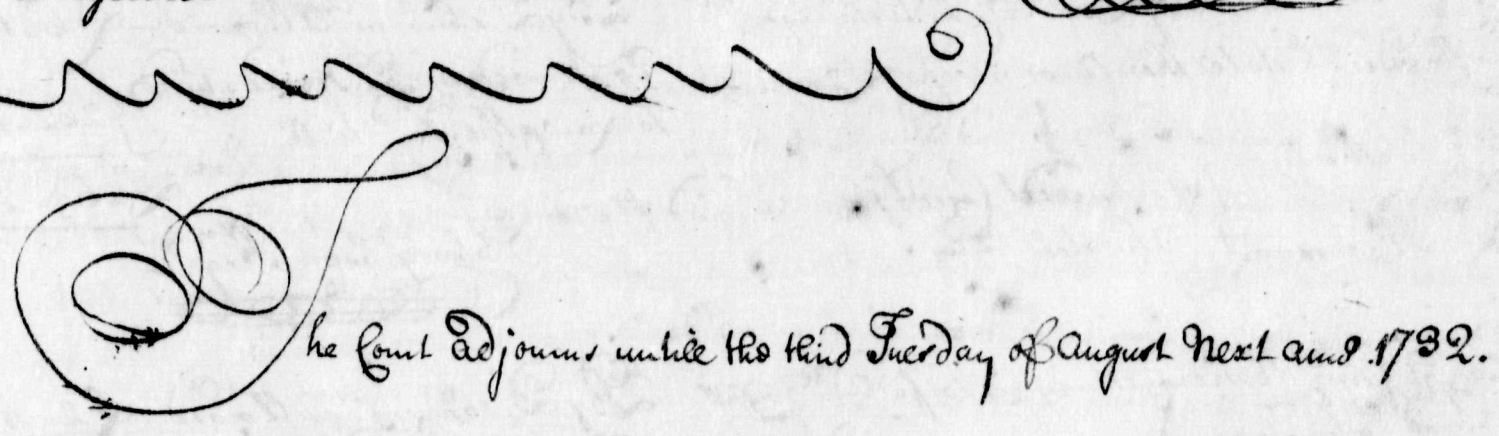 The Court Adjourns untill the third Tuesday of August Next annᵒ. 1732.